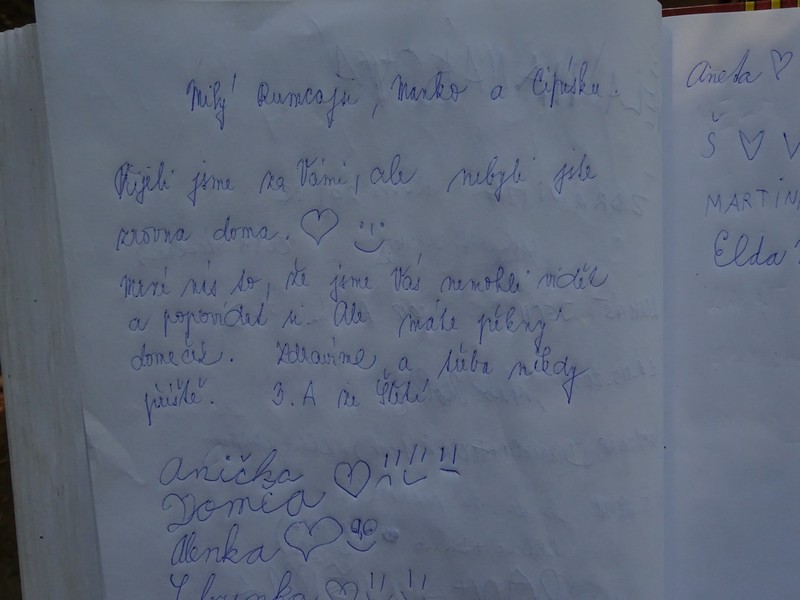 Milý Rumcajsi, Manko a Cipísku.
Přijeli jsme za Vámi, ale nebyli jste
zrovna doma.
Mrzí nás to, že jsme Vás nemohli vidět
a popovídat si. Ale máte pěkný
domeček. Zdravíme, a třeba někdy
příště. 3. A ze Štětí
Anička
Domča
Alenka
Aneta
Š V
MARTIN
Elda